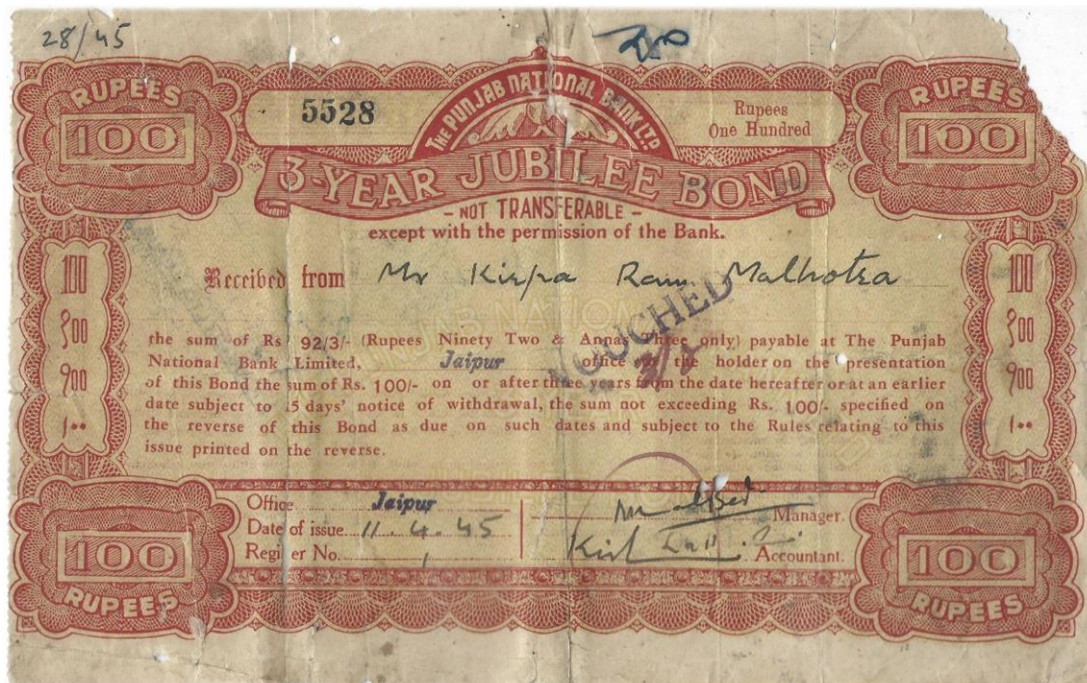 28/45
RUPEES 100
THE PUNJAB NATIONAL BANK LTD
RUPEES 100
5528
Rupees
One Hundred
3-YEAR JUBILEE BOND
- NOT TRANSFERABLE -
except with the permission of the Bank.
Received from Mr Kirpa Ram Malhotra
VOUCHED
the sum of Rs 92/3/- (Rupees Ninety Two & Annas Three only) payable at The Punjab
National Bank Limited, Jaipur office to the holder on the presentation
of this Bond the sum of Rs. 100/- on or after three years from the date hereafter or at an earlier
date subject to 15 days' notice of withdrawal, the sum not exceeding Rs. 100/- specified on
the reverse of this Bond as due on such dates and subject to the Rules relating to this
issue printed on the reverse.
100
१००
੧੦੦
۱۰۰
100
१००
੧੦੦
۱۰۰
Office Jaipur
Date of issue 11.4.45
Register No. 1
Manager.
Accountant.
100 RUPEES
100 RUPEES